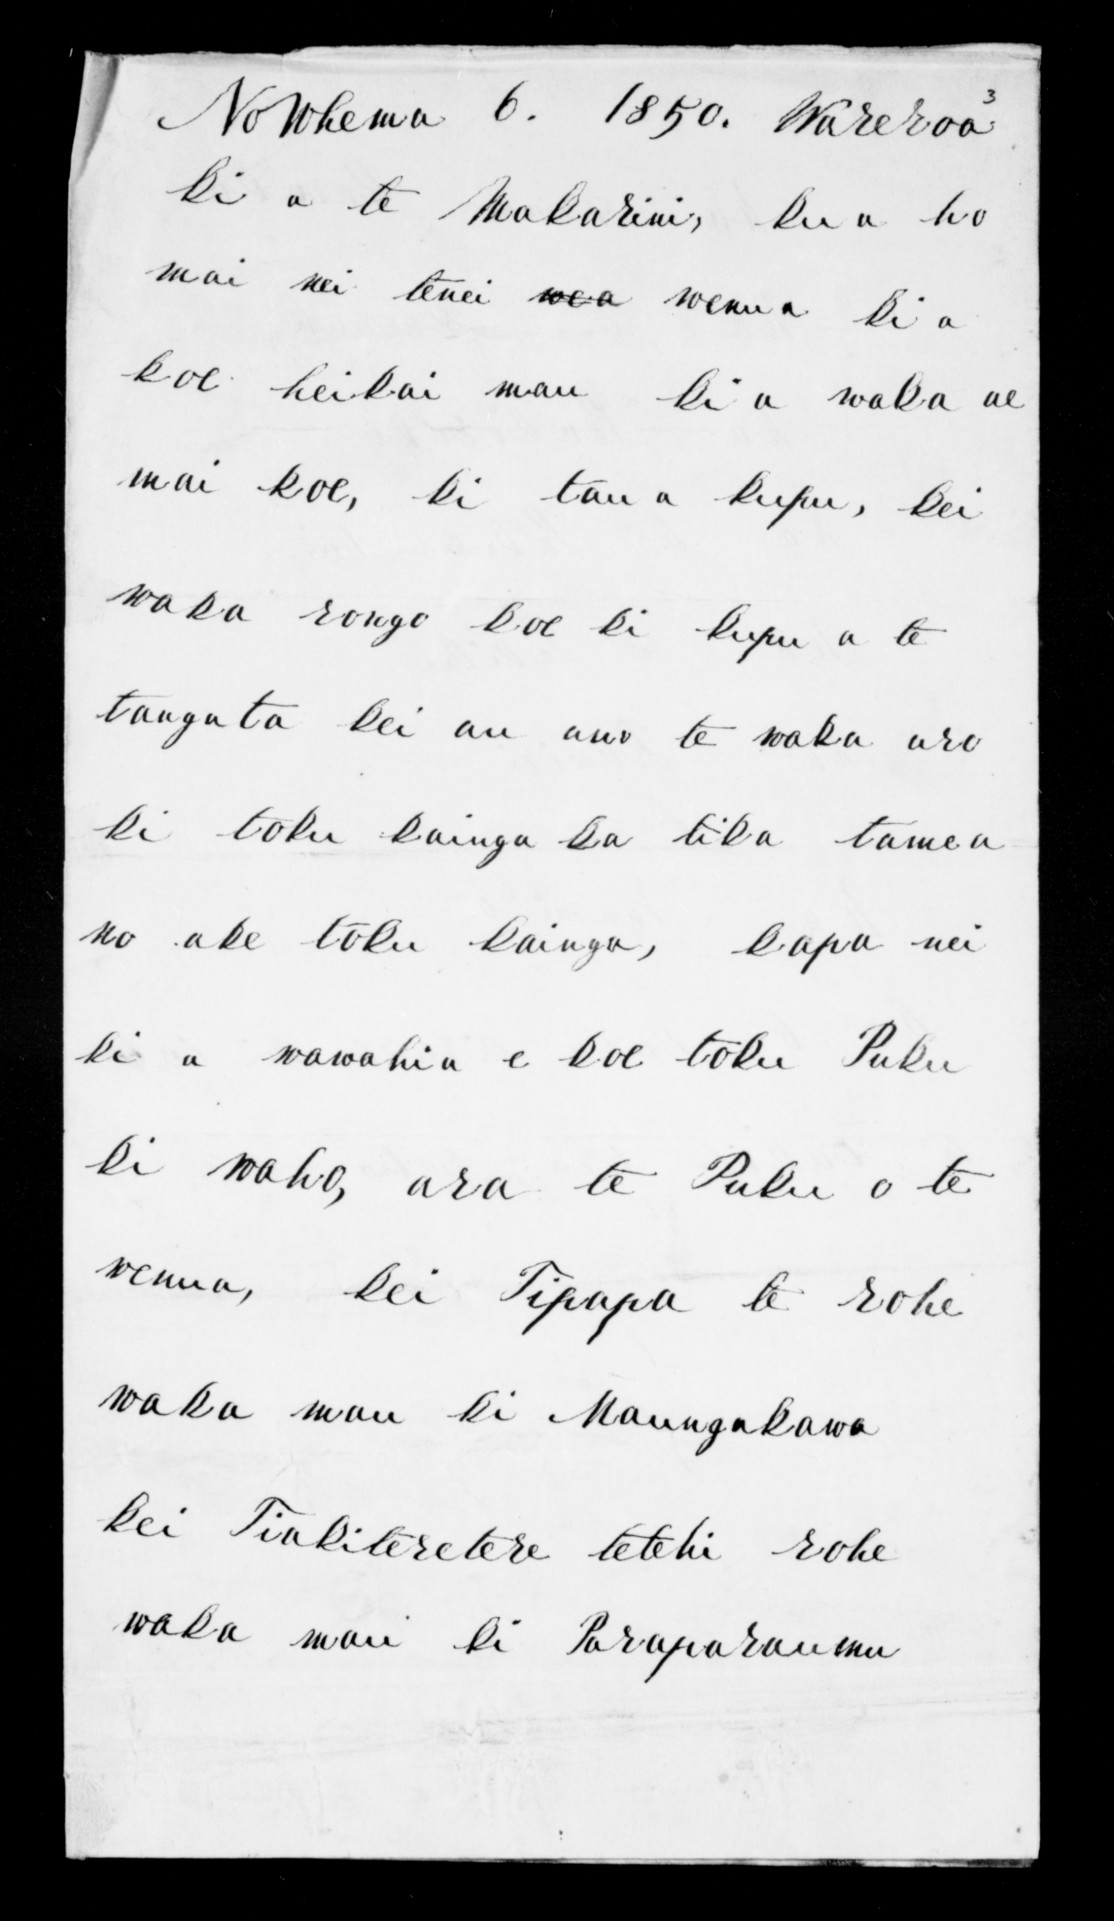 No Whema 6. 1850. Wareroa 3
ki a te Makarini, kua ho
mai nei tenei wea wenua ki a
koe hei kai mau ki a waka ae
mai koe, ki taua kupu, kei
waka rongo koe ki kupu a te
tangata kei au ano te waka aro
ki toku kainga ka tika tamea
no ake toku kainga, kapa nei
ki a wawahia e koe toku Puku
ki waho, ara te Puku o te
wenua, kei Tipapa te rohe
waka mau ki Maungakawa
kei Tiakiteretere tetehi rohe
waka mau ki Paraparaumu